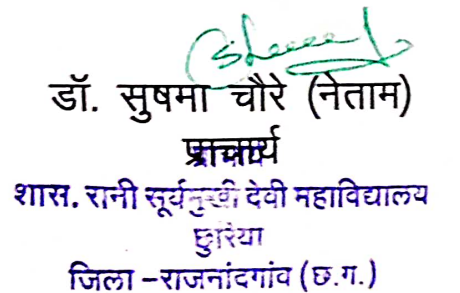 डॉ. सुषमा चौरे (नेताम)
प्राचार्य
शास. रानी सूर्यमुखी देवी महाविद्यालय
छुरिया
जिला –राजनांदगांव (छ.ग.)